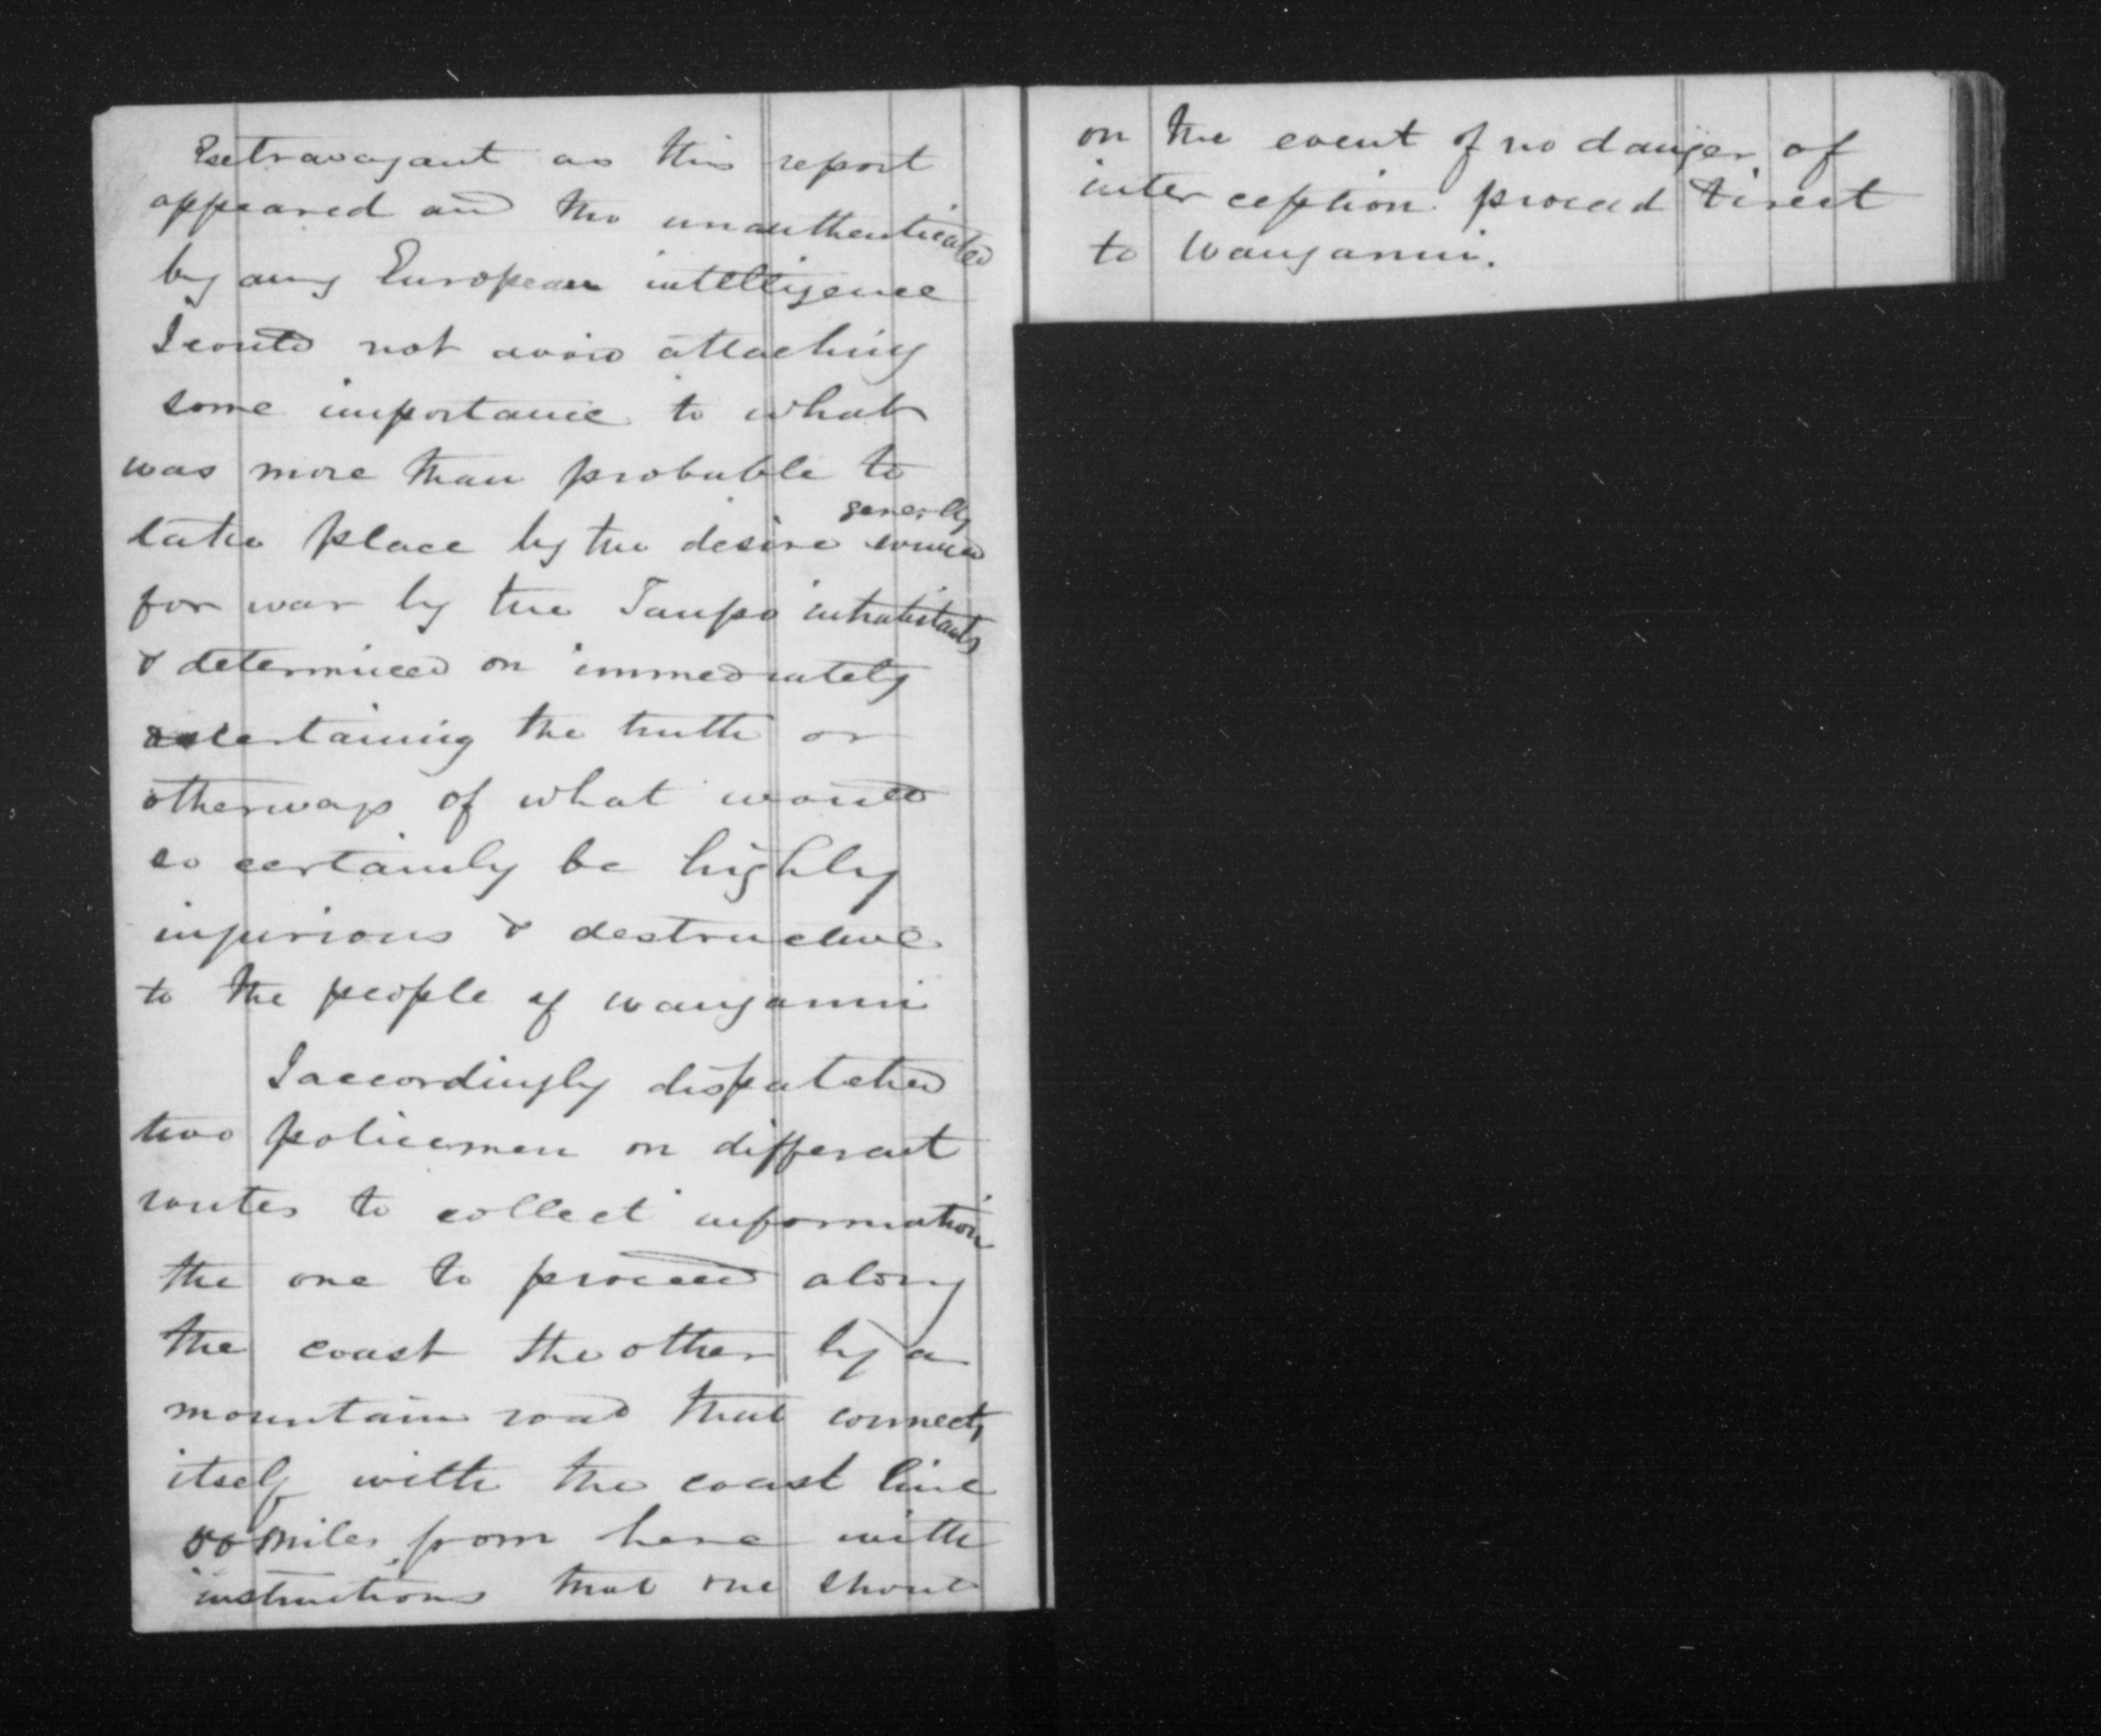 Extravagant as this report
appeared and tho unauthenticated
by any European intelligence
I could not avoid attaching
some importance to what
was more than probable to
generlly
take place by the desire
for war by the Taupo inhabitants
& determined on immediately
ascertaining the truth or
otherways of what would
so certainly be highly
injurious & destructive
to the people of Wanganui
I accordingly dispatched
two policemen on different
routes to collect information
the one to proceed along
the coast the other by a
mountain road that connects
itself with the coast line
miles from here with
instructions that one should
on the event of no danger of
inter ception proceed direct
to Wanganui.